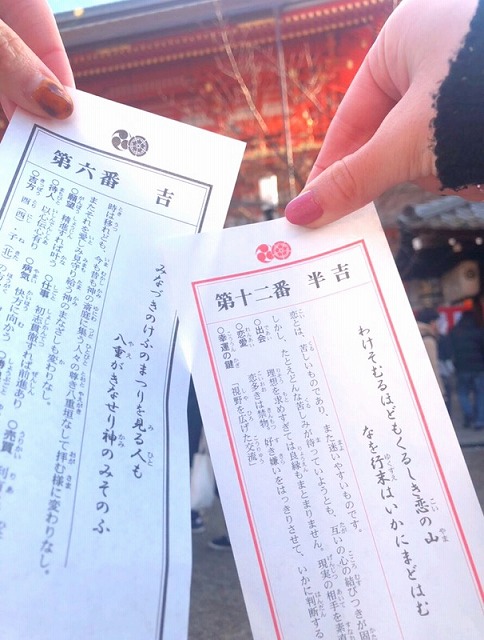 第六番 吉
みなづきのけふのまつりを見る人も
八重がきなせり神のみそのふ
時は移れども、今も昔も神の斎庭に集う人々の尊さ、八重垣なして拝む様に変わりなし。
また、それを愛しく見守り給う神のまなざしも変わりなし。
○願望 精進すれば叶う ○仕事 初志貫徹すれば前進あり ○売買 利あ
○待人 ○病気 快方に向かう
○吉方 西
第十二番 半吉
わけそむるほどもくるしき恋の山
なを行末はいかにまどはむ
恋とは、苦しいものであり、また迷いやすいものです。
しかし、たとえどんな苦しみが待っていようとも、互いの心の結びつきが固
○出会 理想を求めすぎては良縁もまとまりません。現実の相手を素
○恋愛 恋多きは禁物。好き嫌いをはっきりさせて、いかに判断する
○幸運の鍵 「視野を広げた交流」